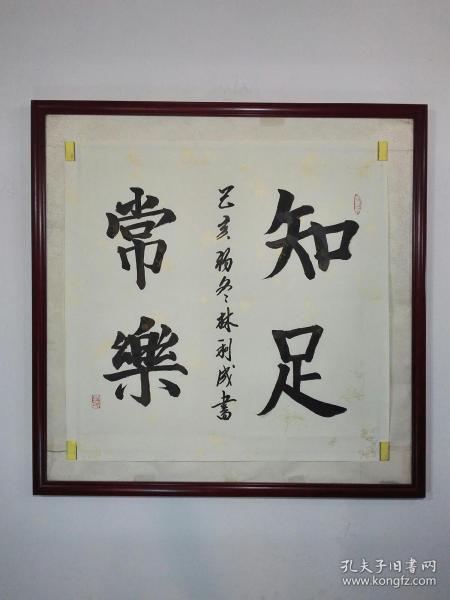 知足
常樂
己亥初冬林利成書
孔夫子旧书网
www.kongfz.com